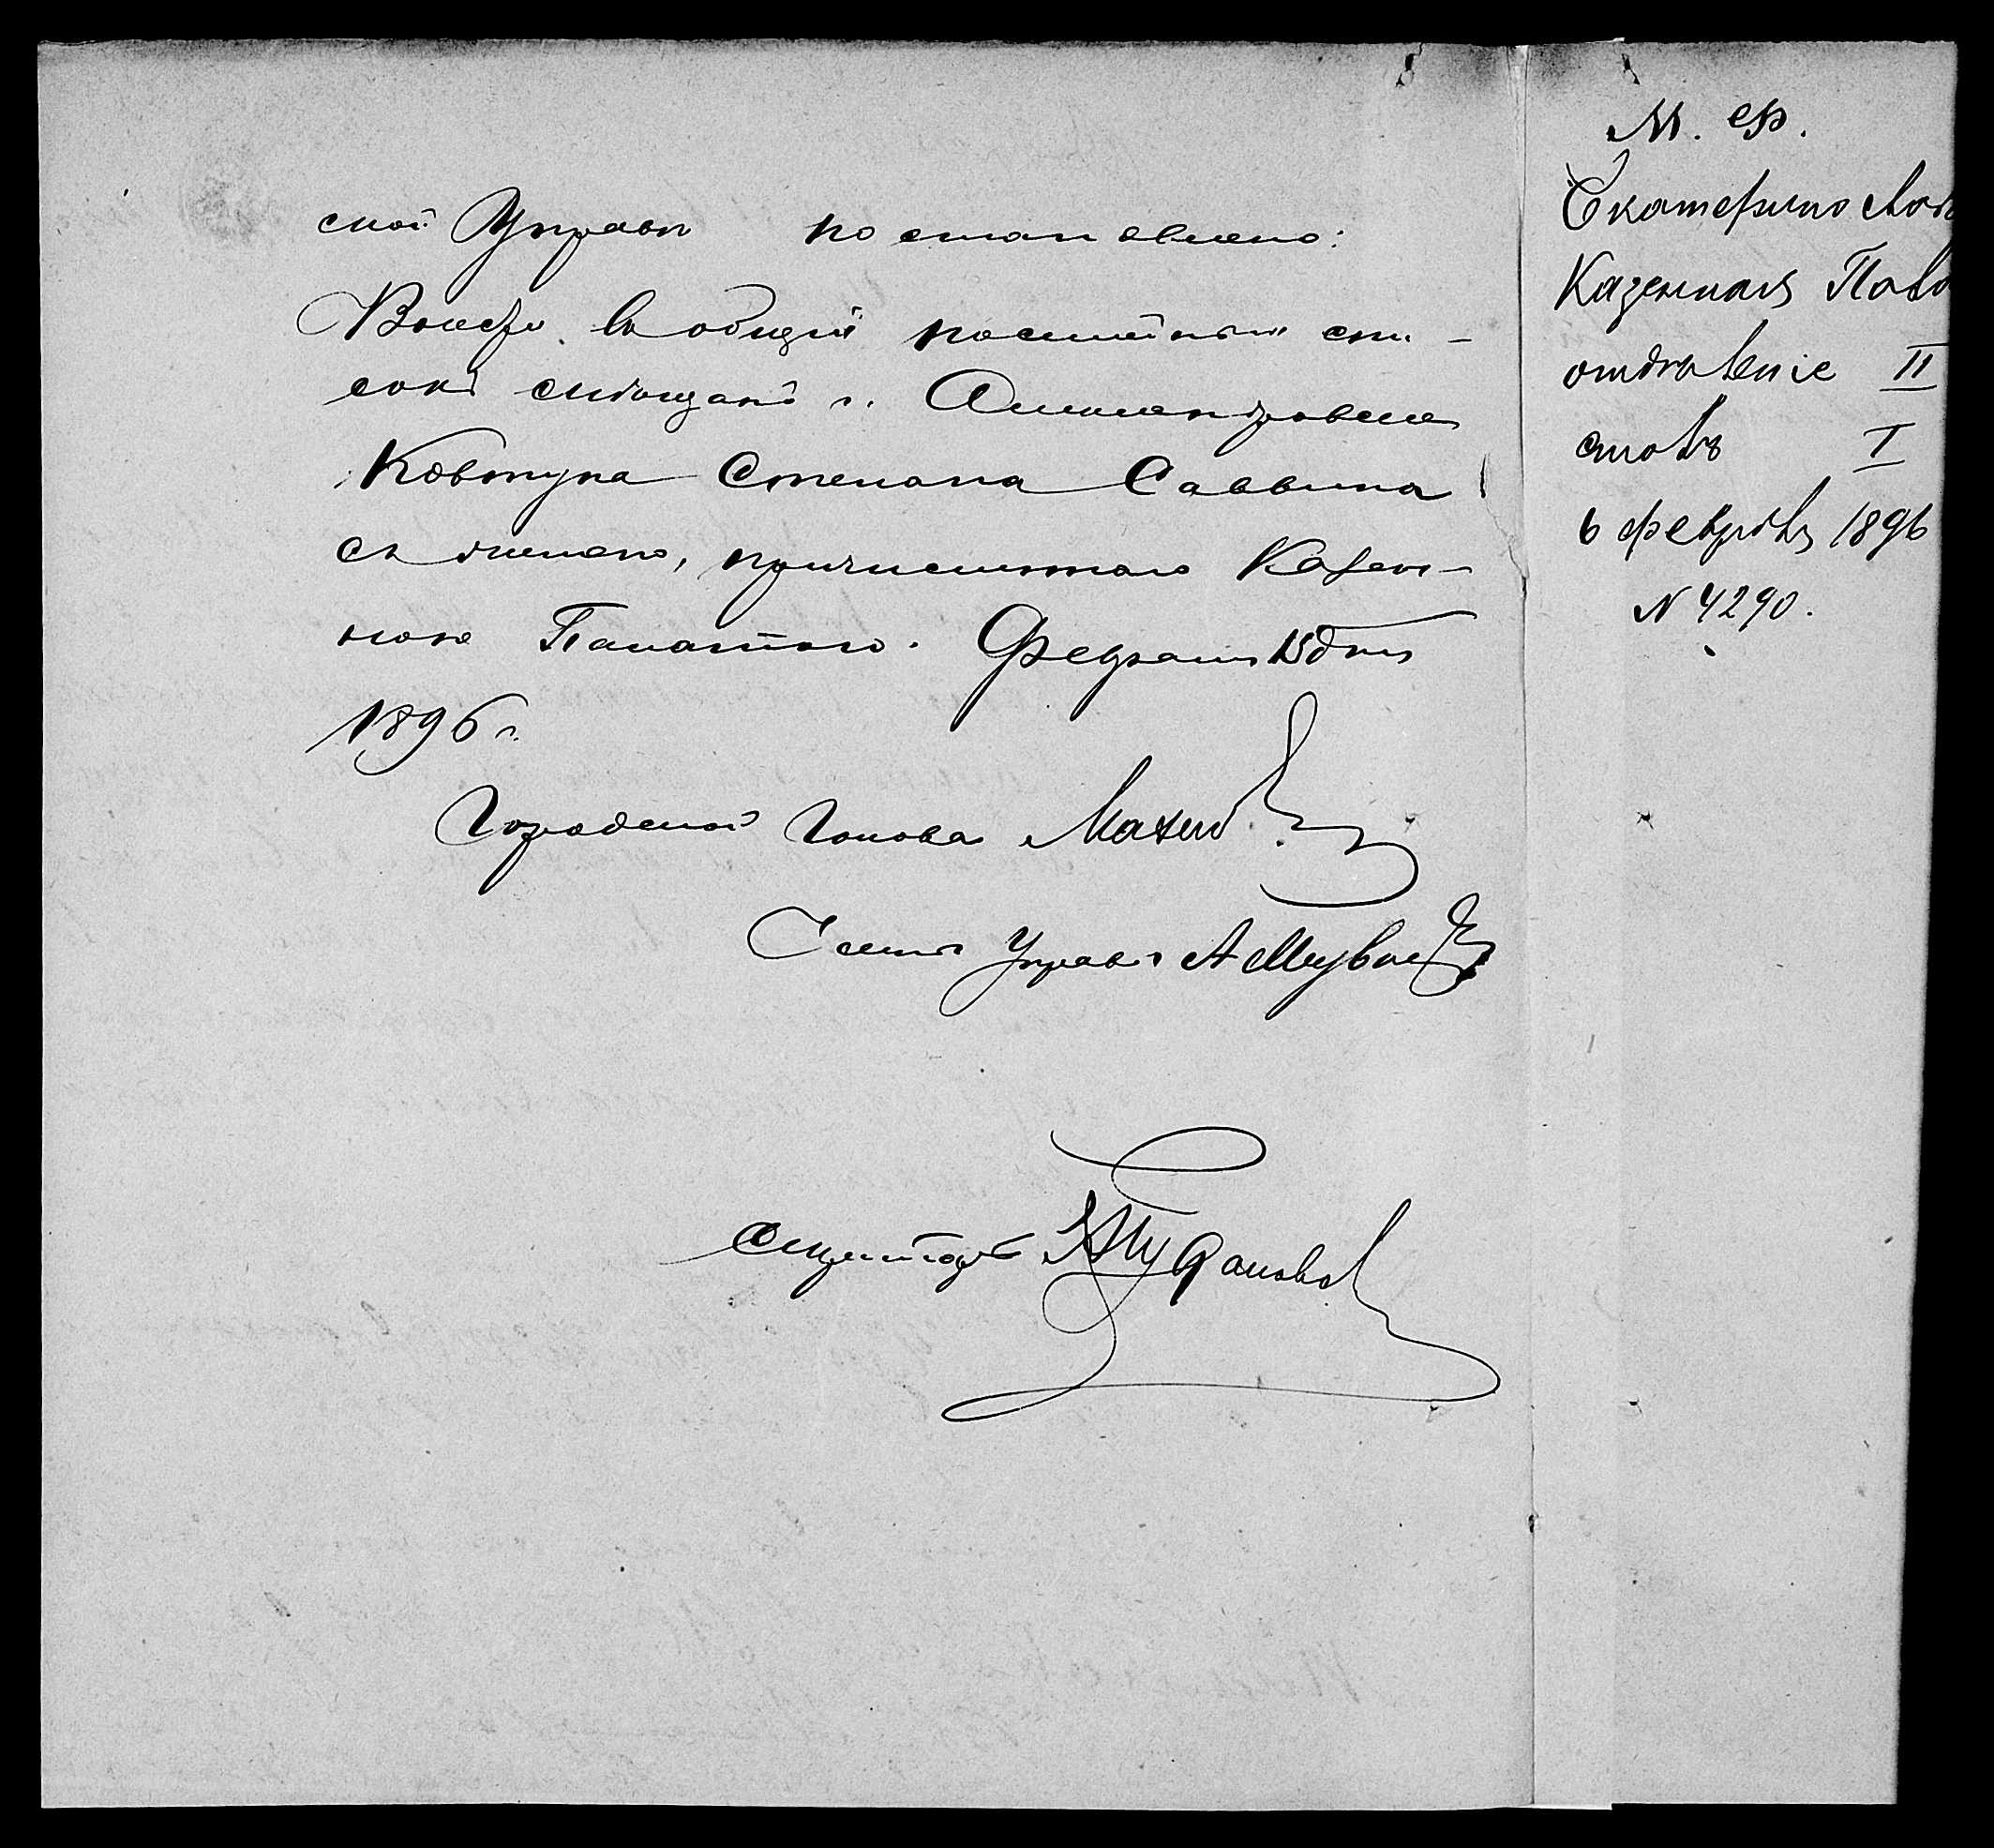 ской Управы постановлено:
Внести въ общій посемейный спи-
сокъ мѣщанъ г. Александровска
Ковтуна Степана Саввина
съ семьею, причисленнаго Казен-
ною Палатою. Февраля 15 дня
1896 г.
Городской Голова
Членъ Управы А
Секретарь
М. Ф.
Екатеринослав
Казенная Пала
отдѣленіе II
столъ I
6 февраля 1896
N 4290.